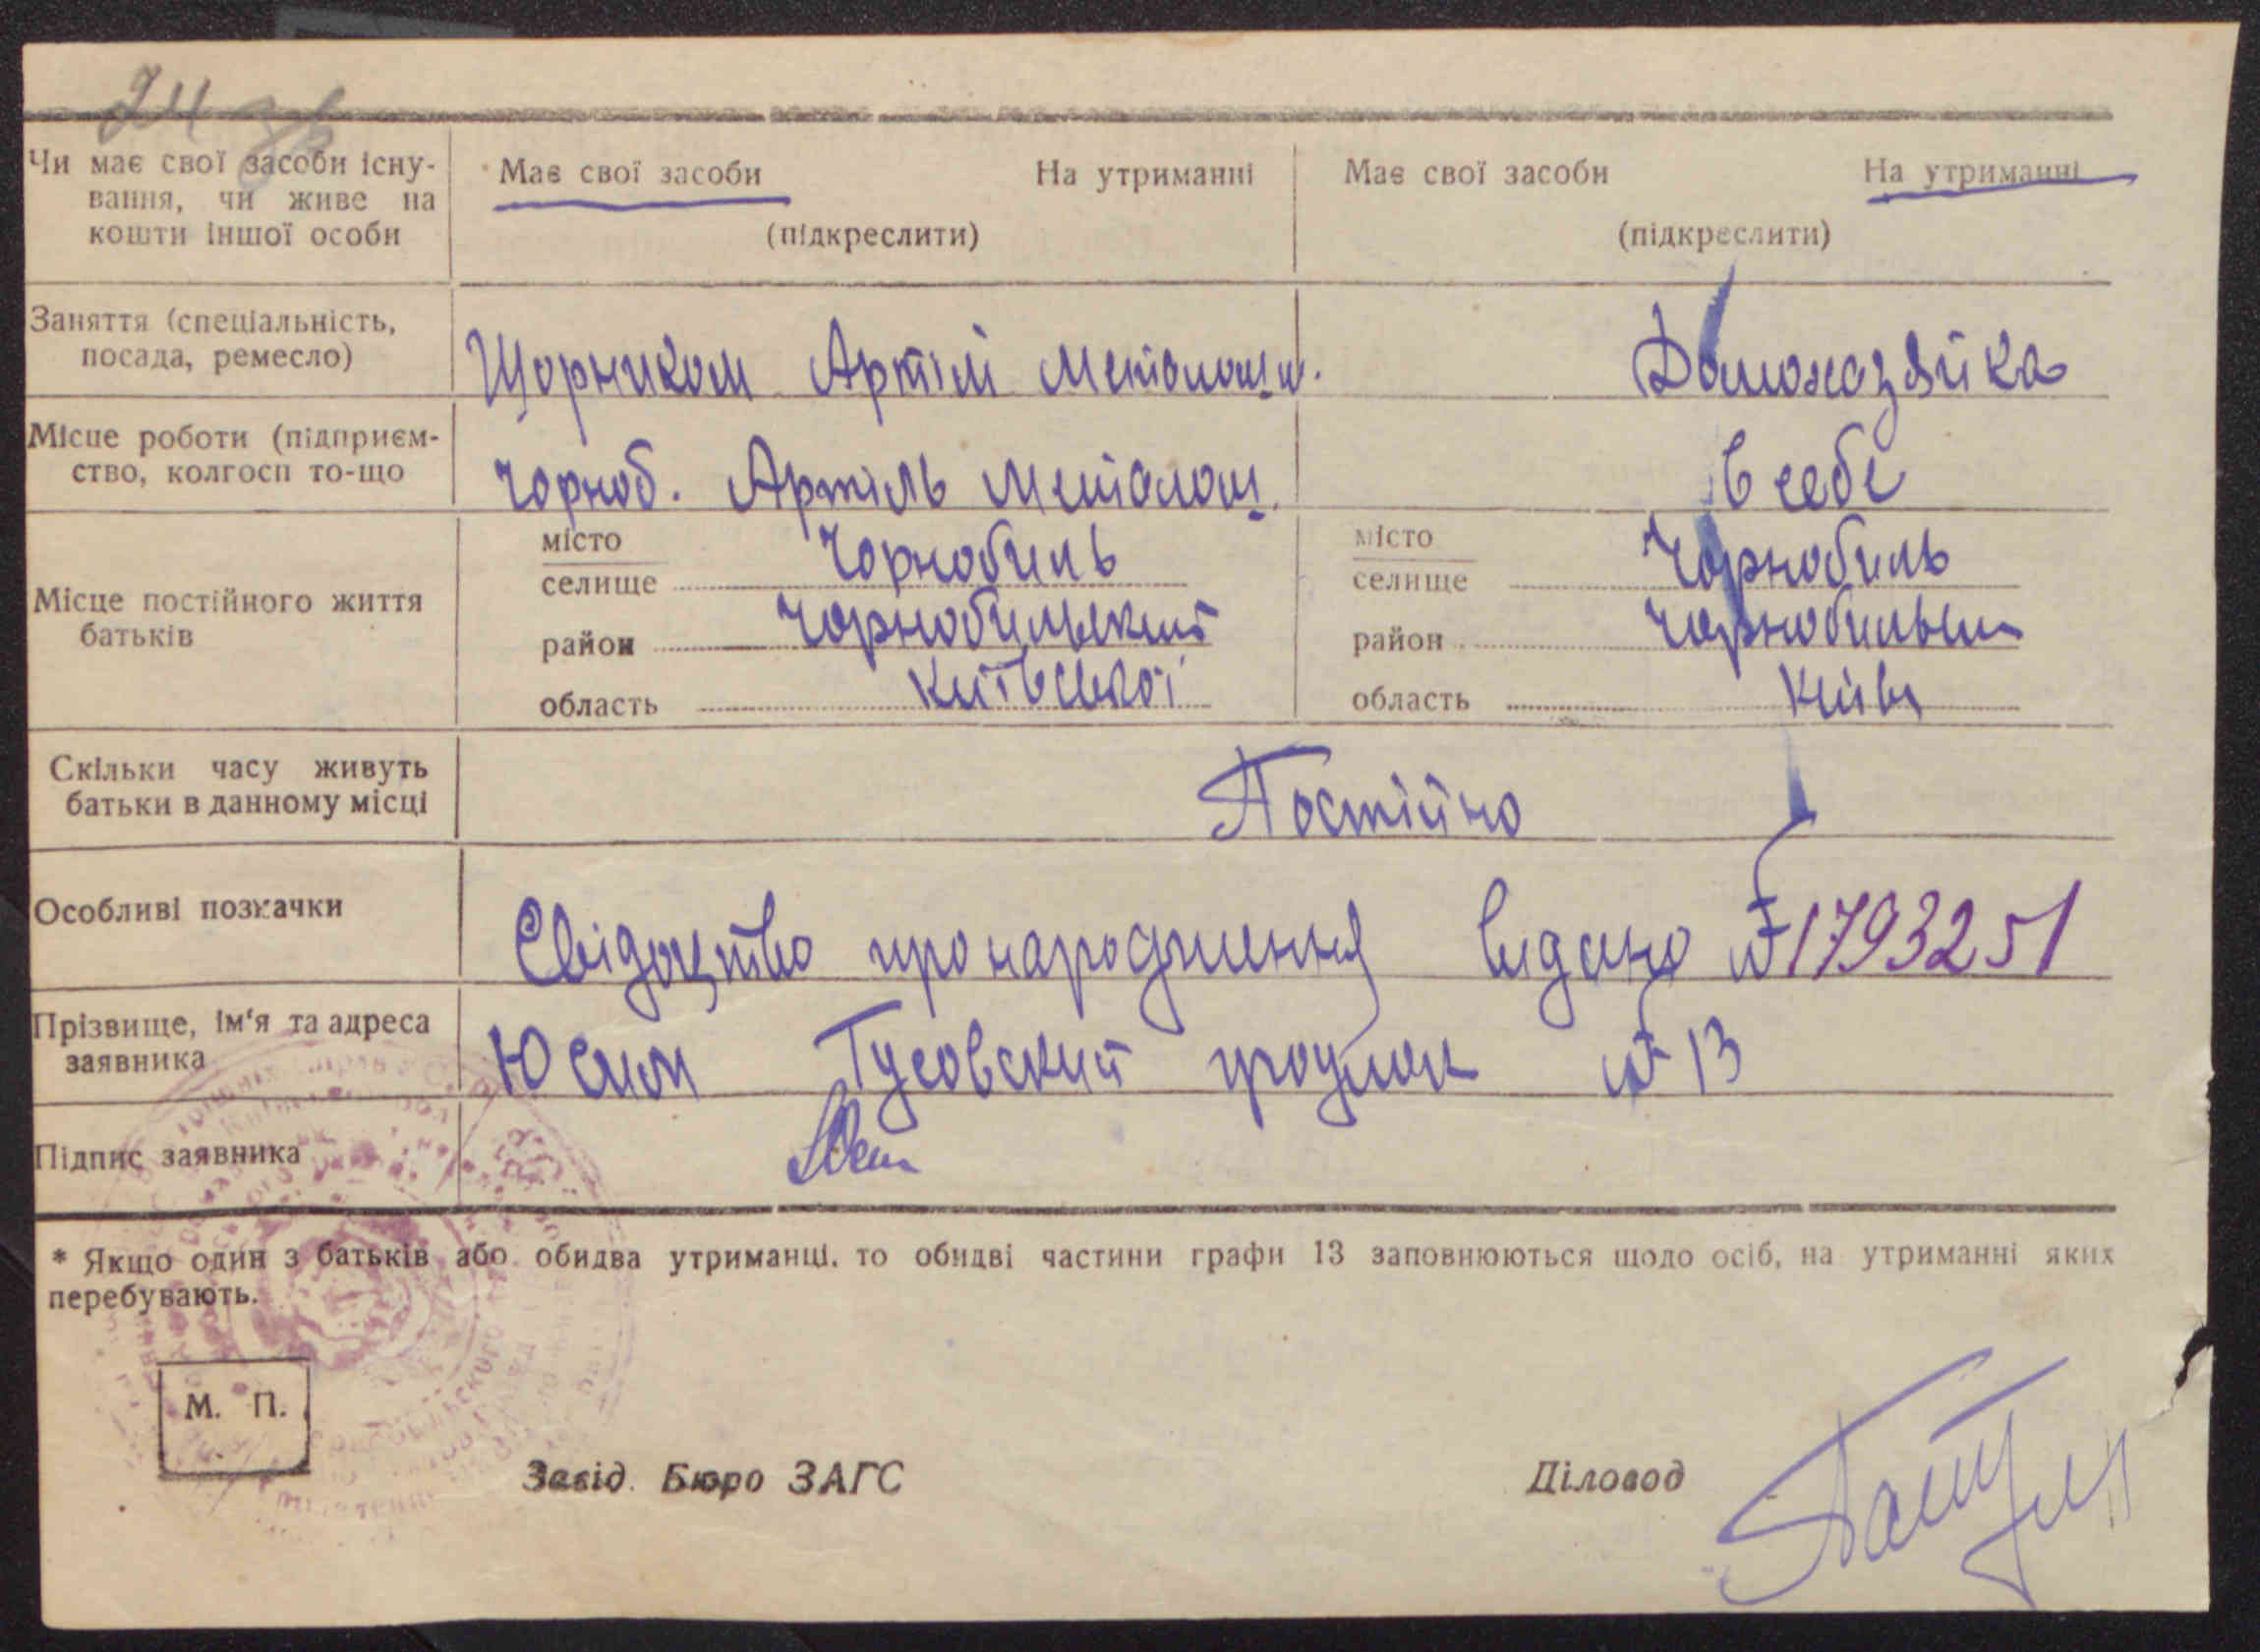 24
Чи має свої засоби існу-
вання, чи живе на
кошти іншої особи
Має свої засоби На утриманні
(підкреслити)
Має свої засоби На утриманні
(підкреслити)
Заняття (спеціальність,
посада, ремесло)
Щорником Артілі Металош.
Домохазяйка
Місце роботи (підприєм-
ство, колгосп то-що
Чорноб. Артіль Металош.
В себе
Місце постійного життя
батьків
місто
селище Чорнобиль
район Чорнобильский
область Київської
місто
селище Чорнобиль
район Чорнобильськ
область Київ
Скільки часу живуть
батьки в данному місці
Постійно
Особливі позначки
Свідоцтво про народження видано № 1793251
Прізвище, ім'я та адреса
заявника
Юсим Гусовский № 13
Підпис заявника
* Якщо один з батьків або обидва утриманці, то обидві частини графи 13 заповнюються щодо осіб, на утриманні яких
перебувають.
М. П.
Завід. Бюро ЗАГС Діловод